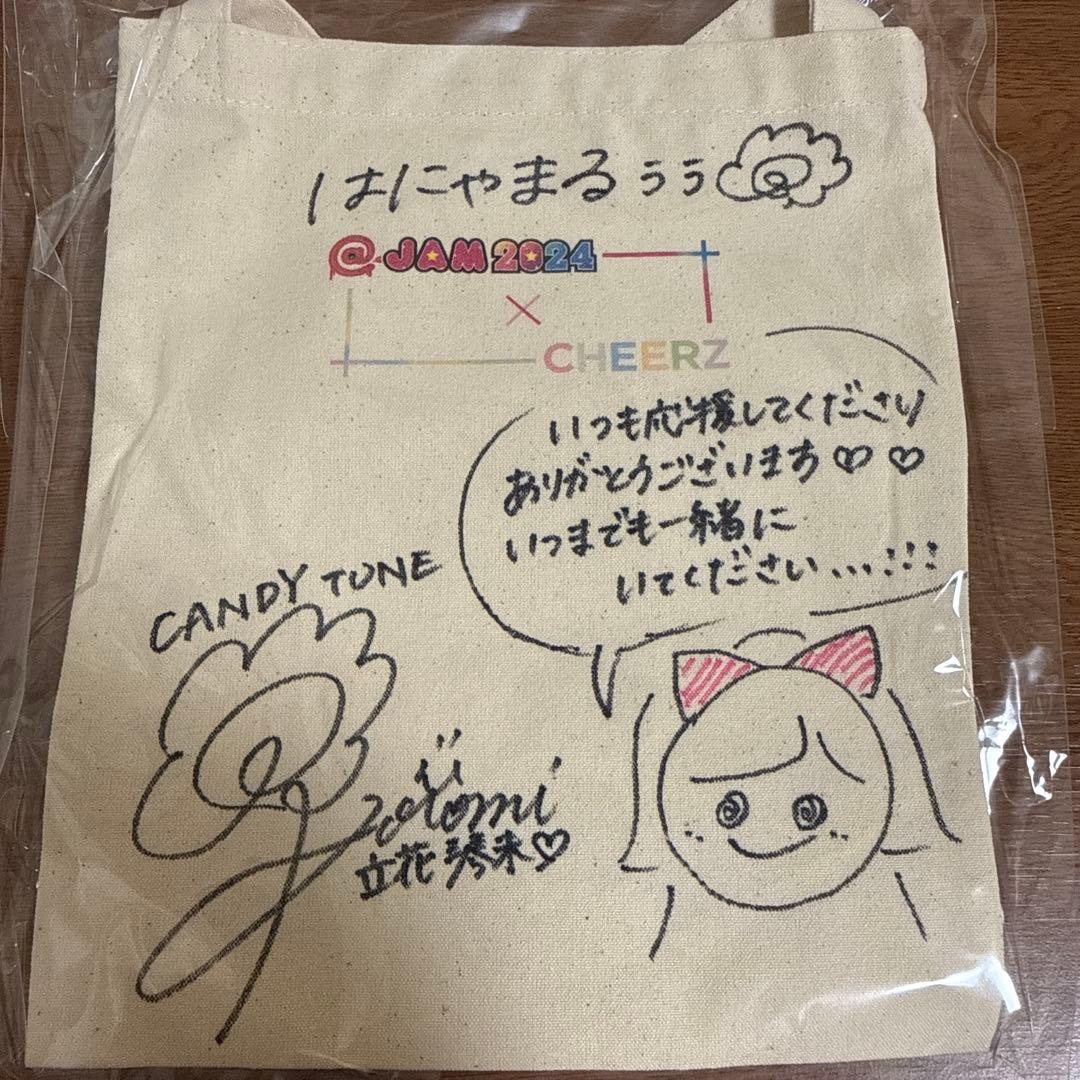 はにゃまるぅぅ
@JAM2024
×
CHEERZ
いつも応援してくださり
ありがとうございます♡♡
いつまでも一緒に
いてください...!!!
CANDY TUNE
立花琴未♡